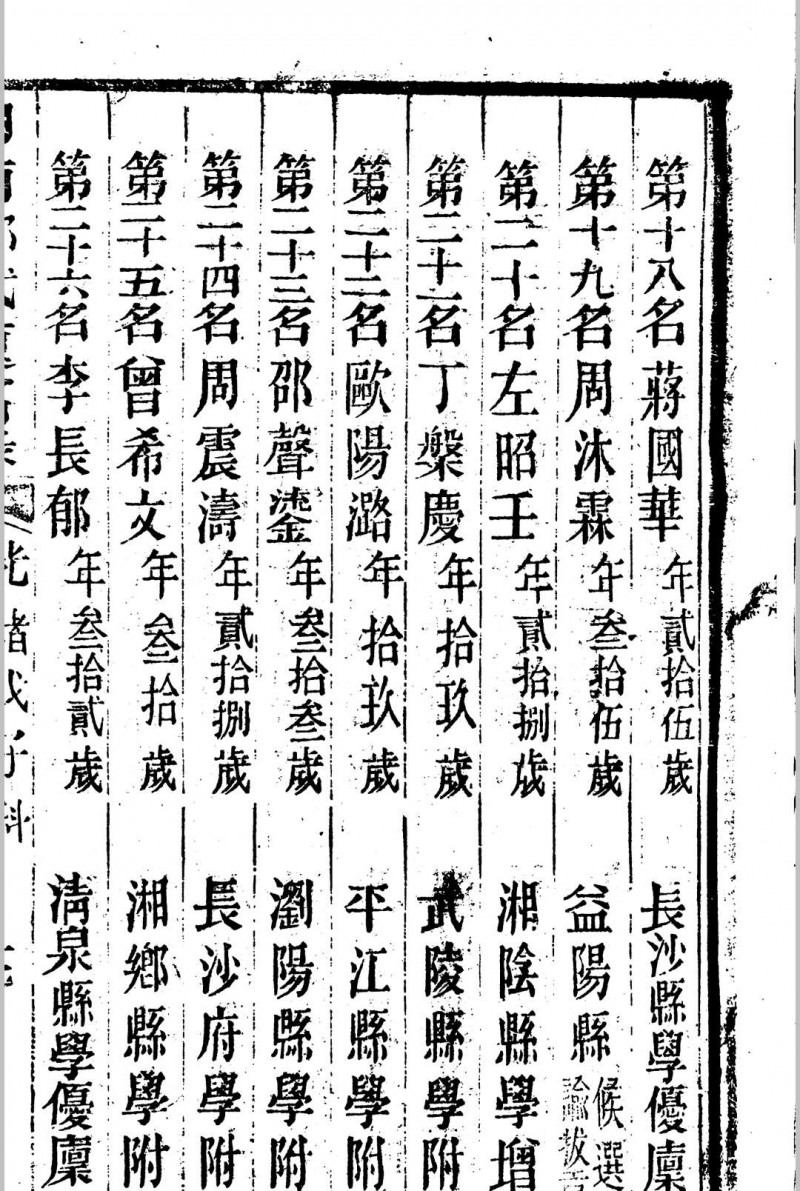 第十八名蔣國華 年貳拾伍歲 長沙縣學優廩
第十九名周沐霖 年叁拾伍歲 益陽縣 候選
第二十名左昭壬 年貳拾捌歲 湘陰縣學增
第二十一名丁槃慶 年拾玖歲 武陵縣學附
第二十二名歐陽潞 年拾玖歲 平江縣學附
第二十三名邵聲鎏 年叁拾叁歲 瀏陽縣學附
第二十四名周震濤 年貳拾捌歲 長沙府學附
第二十五名曾希文 年叁拾歲 湘鄉縣學附
第二十六名李長郁 年叁拾貳歲 清泉縣學優廩
光緒戊子科